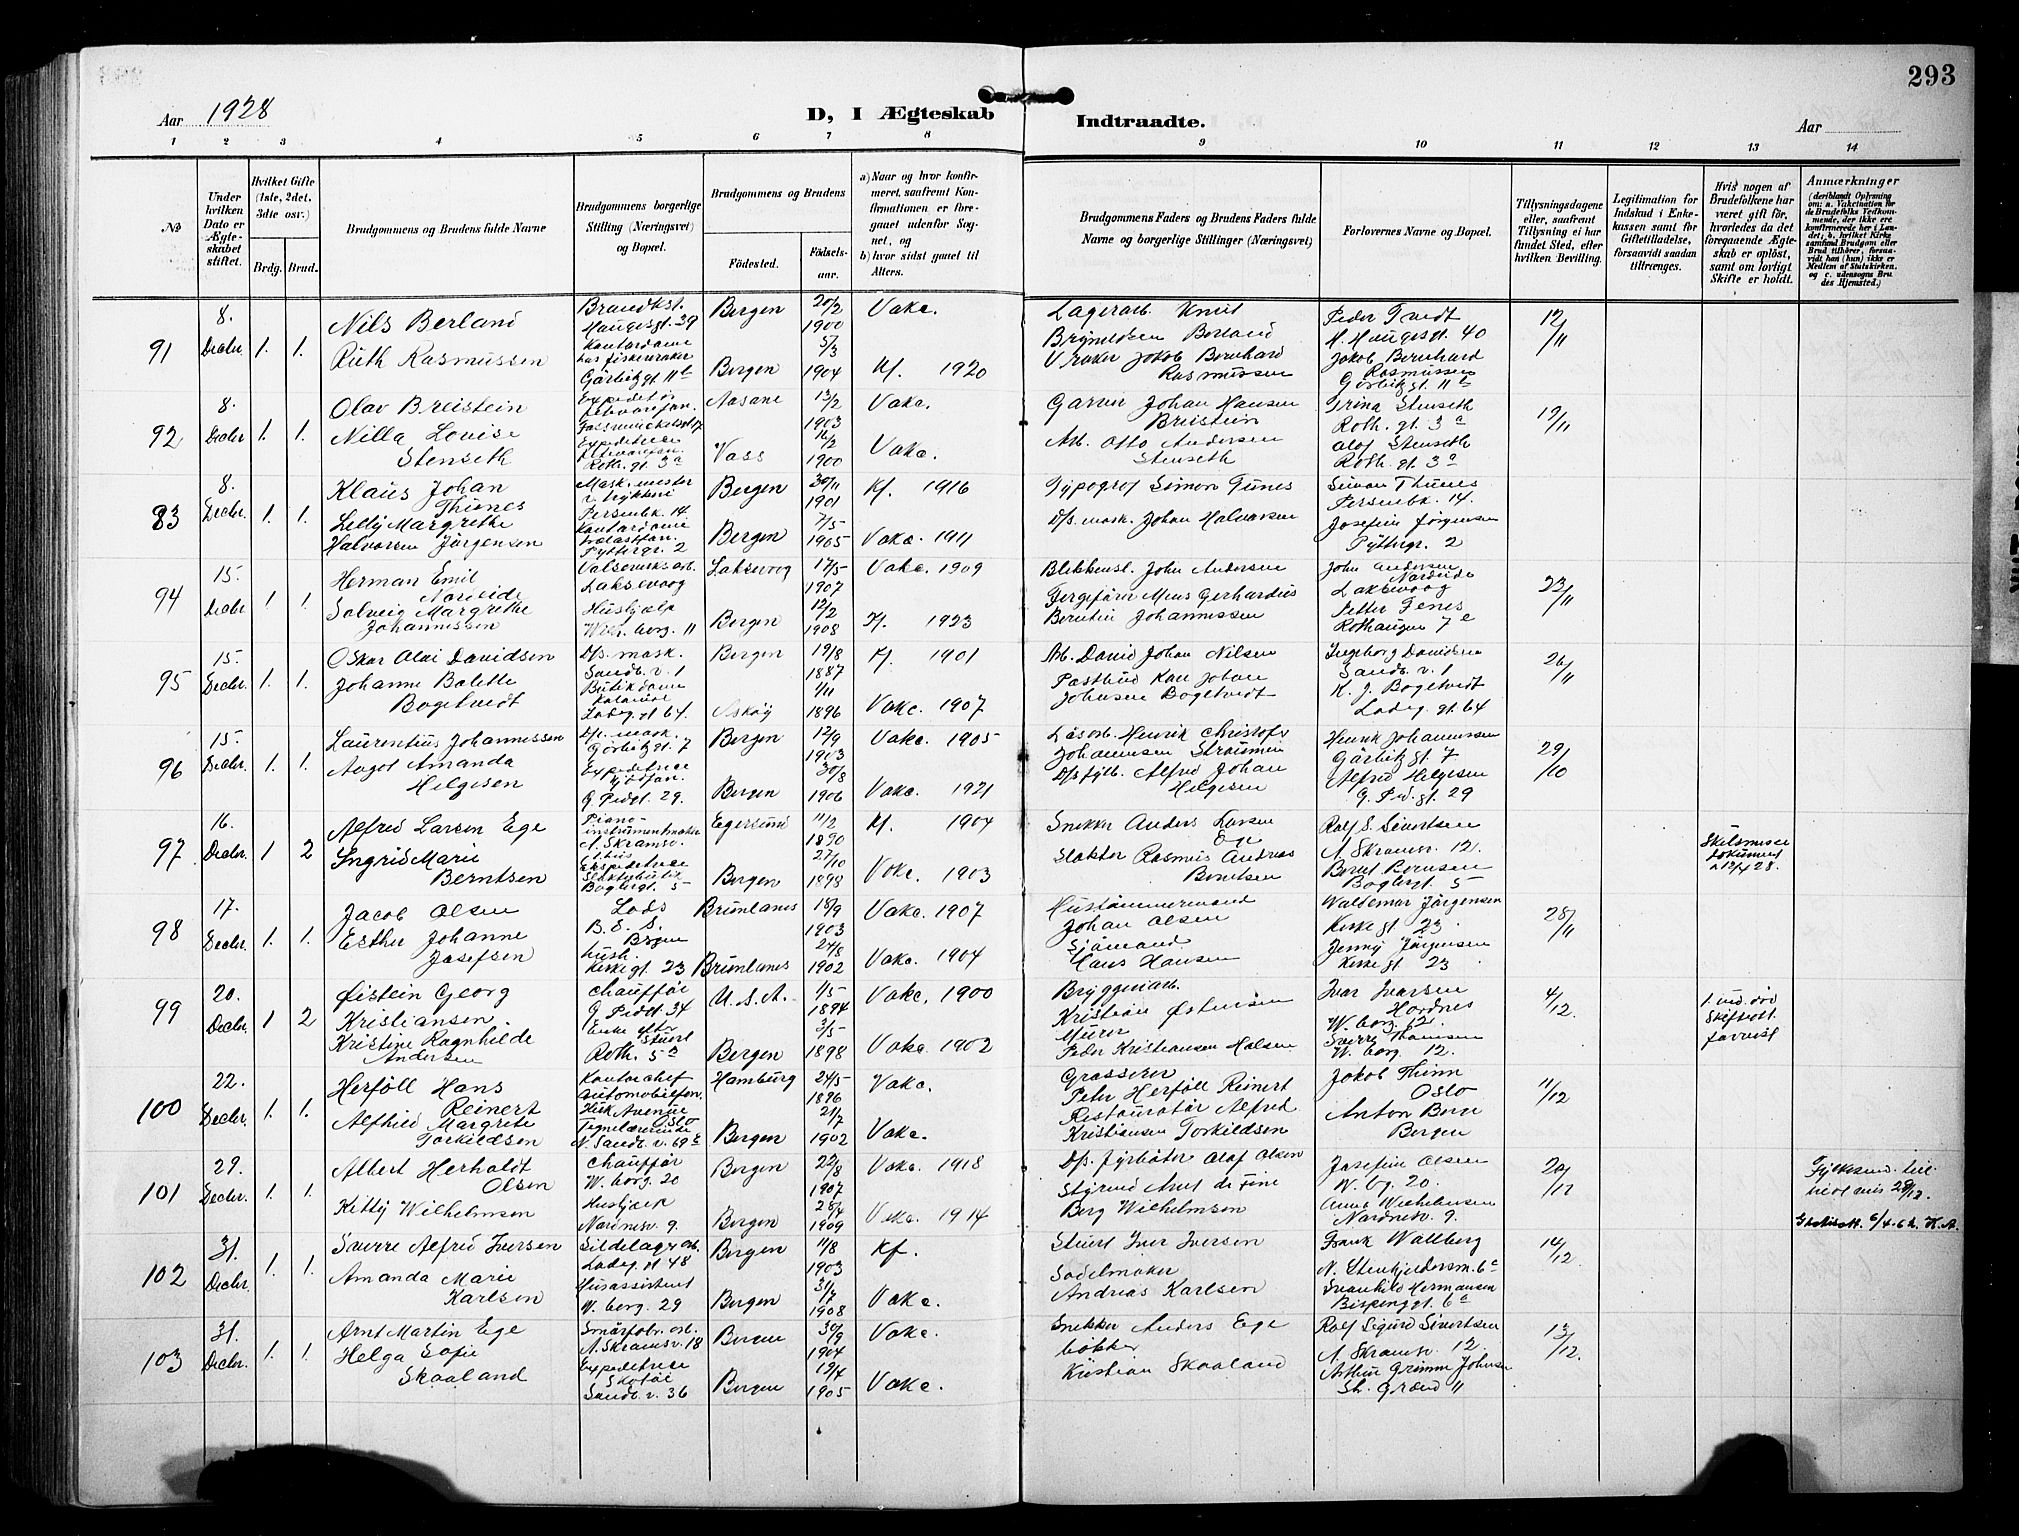 293
Aar 1928
D, I Ægteskab Indtraadte.
Aar
1 2 3 4 5 6 7 8 9 10 11 12 13 14
No
Under hvilken Dato er Ægteskabet stiftet.
Hvilket Gifte (1ste, 2det, 3dte osv.)
Brdg. Brud.
Brudgommens og Brudens fulde Navne
Brudgommens borgerlige Stilling (Næringsvei) og Bopæl.
Brudgommens og Brudens
Fødested.
Fødselsaar.
a) Naar og hvor konfirmeret, saafremt Konfirmationen er foregaaet udenfor Sognet, og
b) hvor sidst gaaet til Alters.
Brudgommens Faders og Brudens Faders fulde Navne og borgerlige Stillinger (Næringsvei)
Forlovernes Navne og Bopæl.
Tillysningsdagene eller, saafremt Tillysning ei har fundet Sted, efter hvilken Bevilling.
Legitimation for Indskud i Enkekassen samt for Giftetilladelse, forsaavidt saadan tiltrænges.
Hvis nogen af Brudefolkene har været gift før, hvorledes da det foregaaende Ægteskab er opløst, samt om lovligt Skifte er holdt.
Anmærkninger
(deriblandt Oplysning om: a. Vakcination for de Brudefolks Vedkommende, der ikke ere konfirmerede her i Landet; b. hvilket Kirkesamfund Brudgom eller Brud tilhører, forsaavidt han (hun) ikke er Medlem af Statskirken, og c. udensogns Brudes Hjemsted.)
91 8. Decbr. 1. 1.
Nils Berland
Ruth Rasmussen
Haugesgt. 39
Kontordame
Bergen 20/2 1900 Vakc.
Bergen 5/3 1904 Kf. 1920
Lagerarb. Knut
Berland
Vraker Jakob Bernhard
Rasmussen
Peder Tvedt
H. Haugesgt. 40
Jakob Bernhard
Rasmussen
12/11
92 8. Decbr 1. 1.
Olav Breistein
Nilla Louise
Stenseth
Roth. gt. 3a
Aasane 13/2 1903 Vakc.
Voss 16/2 1900 Vakc.
Garver Johan Hansen
Breistein
Arb. Otto Andersen
Stenseth
Trina Stenseth
Roth. gt. 3a
Olaf Stenseth
Roth. gt. 3a
12/11
83 8. Decbr. 1. 1.
Klaus Johan
Thunes
Lelly Margrethe
Halvorsen Jørgensen
Mask. mester
v. trykkeri
Persenbk. 14
Kontordame
Pyttergt. 2
Bergen 30/11 1901 Kf. 1916
Bergen 7/5 1905 Vakc. 1911
Typograf Simon Tunes
D/s. mask. Johan Halvorsen
Simon Thunes
Persenbk. 14.
Josefine Jørgensen
Pyttergr. 2
94 15. Decbr 1. 1.
Herman Emil
Nordeide
Solveig Margrethe
Johannessen
Laksevaag
Hushjælp
Wilh. borg. 11
Laksevaag 17/5 1907 Vakc. 1909
Bergen 12/2 1908 Kf. 1923
Blikkensl. John Andersen
Fergefører Mens Gerhardius
Berntin Johannessen
John Andersen
Nordeide
Laksevaag
Petter Tenes
Rothaugen 7e
23/11
95 15. Decbr. 1. 1.
Oskar Olai Davidsen
Johanne Bolette
Bogetvedt
D/s. mask.
Sandv. v. 1
Butikdame
Kolonial
Ladeg. gt 64.
Bergen 19/8 1887 Kf. 1901
Askøy 1/11 1896 Vakc. 1907
Arb. David Johan Nilsen
Postbud Karl Johan
Johnsen Bogetvedt
Ingeborg Davidsen
Sandv. v. 1
K. J. Bogetvedt
Ladeg. gt. 64
26/11
96 15. Decbr. 1. 1.
Laurentius Johannessen
Aagot Amanda
Helgesen
D/s. mask.
Gørbitzgt. 7
Expeditrice
G. Pedgt. 29.
Bergen 12/9 1903 Vakc. 1905
Bergen 30/8 1906 Vakc. 1921
Løsarb. Henrik Christofv
Johannesen Straumen
D/s fyrb. Alfred Johan
Helgesen
Henrik Johannessen
Gørbitzgt. 7
Alfred Helgesen
G. Ped. gt. 29
29/10
97 16. Decbr. 1 2
Alfred Larsen Ege
Ingrid Marie
Berntsen
Piano-
instrumentmaker
N. Skramsv.
Expeditrice
Slakterbutik
Boglergt. 5
Egersund 11/2 1890 Kf. 1904
Bergen 27/10 1898 Vakc. 1903
Snekker Anders Larsen
Ege
Slakter Rasmus Andreas
Berntsen
Rolf S. Sivertsen
N. Skramsv. 12.
Bernt Berntsen
Boglergt. 5
Skilsmisse
dokument
12/4 28.
98 17. Decbr. 1. 1.
Jacob Olsen
Esther Johanne
Josefsen
Lods
B. D. S.
Bergen
hush.
Kirkegt. 23
Brunlanes 18/9 1903 Vakc. 1907
Brunlanes 24/8 1902 Vakc. 1904
Hustømmermand
Johan Olsen
Sjømand
Hans Hansen
Waldemar Jørgensen
Kirkegt 23
Jenny Jørgensen
Kirkegt 23
28/11
99 20. Decbr. 1 2
Øistein Georg
Kristiansen.
Kristine Ragnhilde
Andersen
Chauffør
G. Pedgt. 34
Enke efter
Stuert
Roth. 5a
U. S. A. 1/5 1894 Vakc. 1900
Bergen 3/5 1898 Vakc. 1902
Bryggeriarb.
Kristian Østensen
Murer
Peder Kristiansen Halsen
Ivar Ivarsen
Hordnes
W. borg. 12.
Sverre Thomsen
W. borg. 12.
4/12.
Skifteatt.
forevist
100 22. Decbr. 1. 1.
Herföll Hans
Reinert
Alfhild Margrete
Torkildsen
Kontorchef
Automobilfor.
Oslo
Tegnelærerinde
N. Sandv. v. 69c
Hamburg 24/5 1896 Vakc.
Bergen 21/7 1902 Vakc.
Grosserer
Peter Herföll Reinert
Restauratør Alfred
Kristiansen Torkildsen
Jakob Thinn
Oslo
Anton Berge
Bergen
11/12
101 29. Decbr. 1. 1.
Albert Herholdt
Olsen
Kitty Wilhelmsen
Chauffør
W. borg. 20
Hushjælp
Nordnesv. 9.
Bergen 22/8 1907 Vakc. 1918
Bergen 28/4 1909 Vakc. 1914
D/s. fyrbøter Olaf Olsen
Styrmd Arnt de Fine
Berg Wilhelmsen
Josefine Olsen
W. bg. 20.
Anna Wilhelmsen
Nordnesv. 9.
20/12
102 31. Decbr. 1. 1.
Sverre Alfred Iversen
Amanda Marie
Karlsen
Sildelager arb.
Ladeg. gt 48
Husassistent
W. borg. 29
Bergen 11/8 1903 Kf.
Bergen 31/7 1908 Vakc.
Stuert Iver Iversen
Sadelmaker
Andreas Karlsen
Frank Wallberg
N. Stenkjeldersm. 6c
Svanhild Hermansen
Bispengt. 6a
14/12.
103 31. Decbr. 1. 1.
Arnt Martin Ege
Helga Sofie
Skaaland
Smørfabr. arb.
N. Skramsv. 18
Expeditrice
Skotøi
Sandv. v. 36
Bergen 30/9 1904 Vakc.
Bergen 19/4 1905 Vakc.
Snekker Anders Ege
bøkker
Kristian Skaaland
Rolf Sigurd Sivertsen
N. Skramsv. 12.
Arthur Grimm Johnsen
13/12.